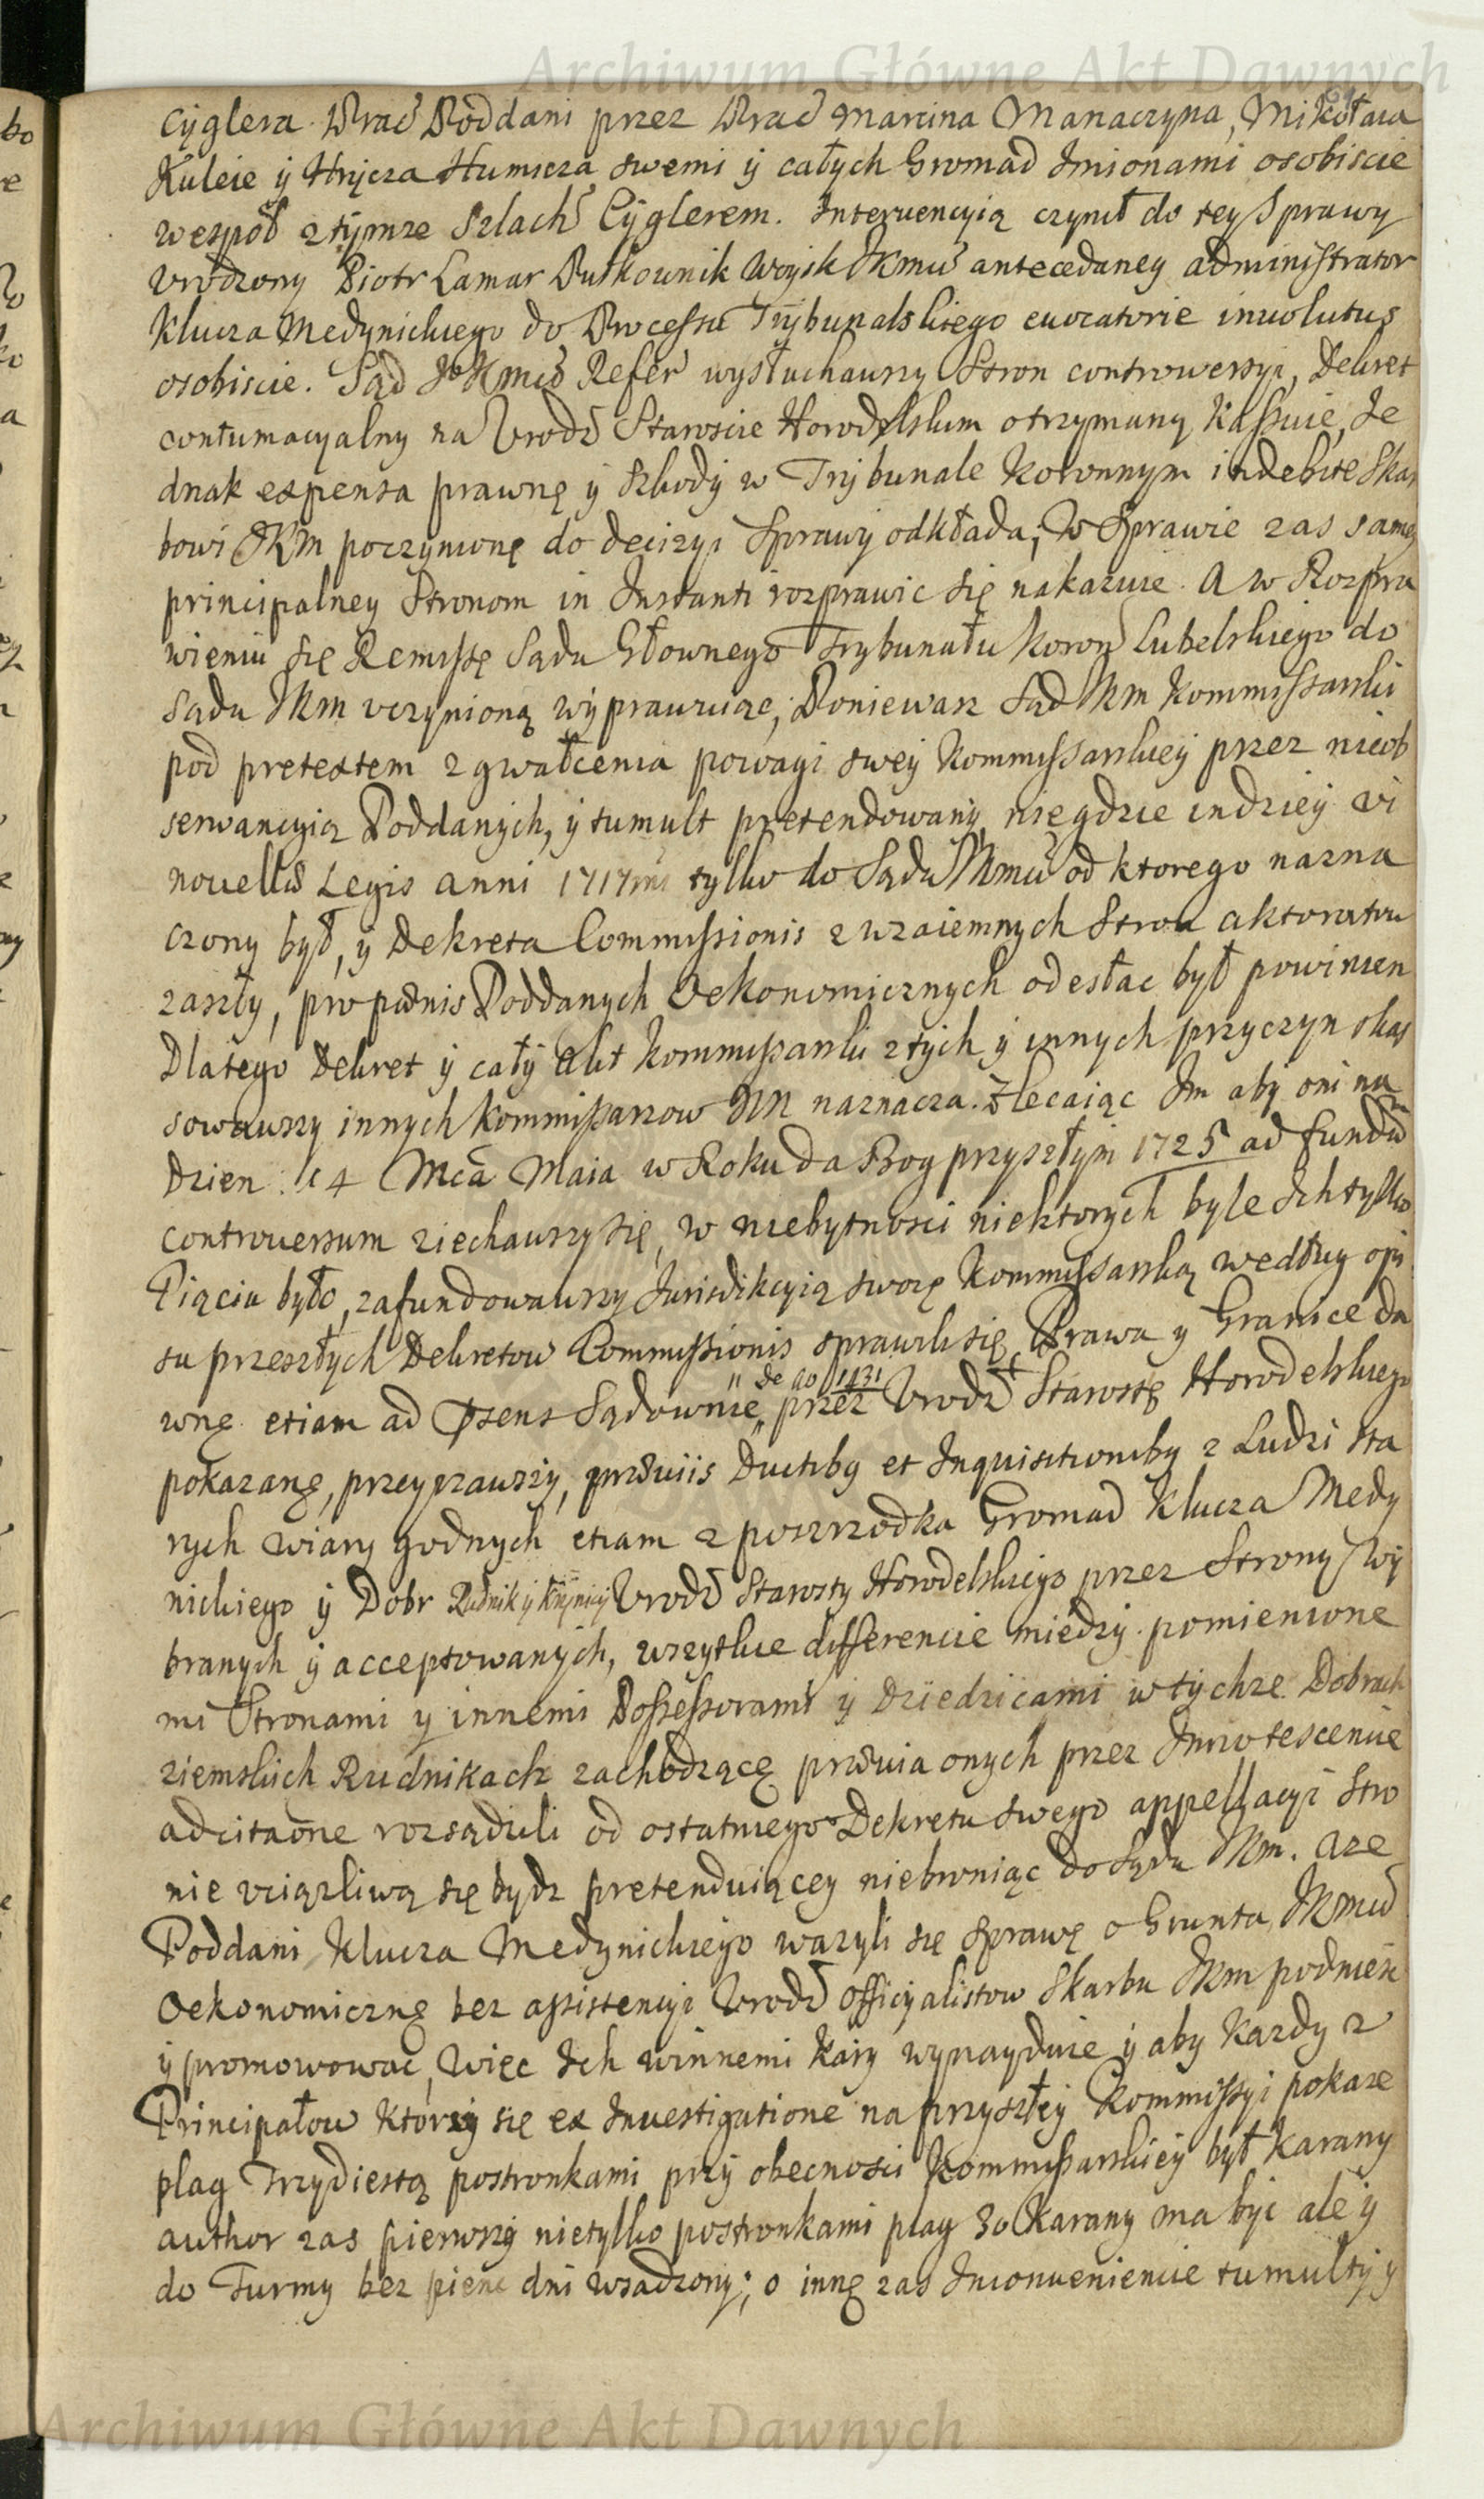 Archiwum Główne Akt Dawnych
Cyglera. Prac̃ Poddani przez Prac̃ Marcina Manaczyna, Mikołaia
Kuleie ÿ Hrÿcza Humicza swemi ÿ całych Gromad Jmionami osobiscie
wespoł z tÿmze Szlach̃ Cÿglerem. Interuencyią czynił do tey Sprawy
Vrodzony Piotr Lamar Pułkownik Woysk JKmci antecedaney administrator
Klucza Medynickiego do Processu Trÿbunalskiego euocatorie inuolutus
osobiscie. Sąd JKmci Refer̃ wysłuchawszy Stron controwersyi, Dekret
contumacyalny na Vrodz̃ Staroscie Horodelskim otrzymany Kassuie, Je
dnak expensa prawnę ÿ szkodÿ w Trÿbunale Koronnym indebite Skar
bowi JKm poczynionę do decizyi Sprawÿ odkłada; W Sprawie zas samey
principalney Stronom in Instanti rozprawic się nakazuie. A w Rozpra
wieniu się Remissę Sądu Głownego Trybunału Koron̄ Lubelskiego do
Sądu JKm vczynioną wÿprawuiąc; Poniewasz Sąd JKm Kommissarski
pod pretextem zgwałcenia powagi swey Kommissarskieÿ przez nieob
serwancyią Poddanych, ÿ tumult pretendowany, niegdzie indzieÿ vi
nouellae Legis anni 1717mi tylko do Sądu JKmci od ktorego nazna
czony był, ÿ Dekreta Commissionis z wzaiemnych Stron aktoratow
zaszły, pro paenis Poddanych Oekonomicznych odesłac był powinien
Dlatego Dekret ÿ całÿ Akt Kommissarski z tÿch ÿ innych przyczyn skas
sowawszy innych Kommissarzow JKM naznacza. Zlecaiąc Im aby oni na
Dzien 14 Mca Maia w Roku da Bog przyszłÿm 1725 ad fundũ
controuersum ziechawszy się, w niebytnosci niektorych byle Ich tylko
Piąciu było, zafundowawszy Jurisdikcyią swoię Kommissarską według opi
su przeszłych Dekretow Commissionis sprawili się, Prawa y Granice da
wnę etiam ad praesens Sądownie „de ao 1431„ przez Vrodz̃ Starostę Horodelskiego
pokazanę, przeyrzawszÿ, praeuiis Ductiby et Inquisitioniby z Ludzi sta
rych wiary godnych etiam z poszrzodka Gromad Klucza Medy
nickiego ÿ Dobr Rudnik ÿ Krÿnicÿ Vrodz̃ Starosty Horodelskiego przez Strony wÿ
branych ÿ acceptowanÿch, wszytkie differencie miedzÿ pomienione
mi Stronami y innemi Possessorami ÿ Dziedzicami w tÿchze Dobrach
ziemskich Rudnikach zachodzącę praeuia onych przez Innotescencie
adcitaõne rozsądzili od ostatniego Dekretu swego appellacyi Stro
nie vciązliwą się bydz pretenduiącey niebroniąc do Sądu JKm. Aze
Poddani Klucza Medynickiego wazyli się Sprawę o Grunta JKmci
Oekonomicznę bez assistencyi Vrodz̃ Officÿalistow Skarbu JKm podniesc
ÿ promowowac, więc Ich winnemi Kary wynayduie ÿ aby Kazdy z
Principałow ktorzÿ się ex Inuestigatione na przyszłeÿ Kommissyi pokaze
plag Trzydziestą postronkami przÿ obecnosci Kommissarskieÿ był Karany
author zas pierwszÿ nietylko postronkami plag 30 Karany ma byc ale ÿ
do Turmy bez pienc dni wsadzony; o innę zas Inconueniencie tumulty ÿ
Archiwum Główne Akt Dawnych